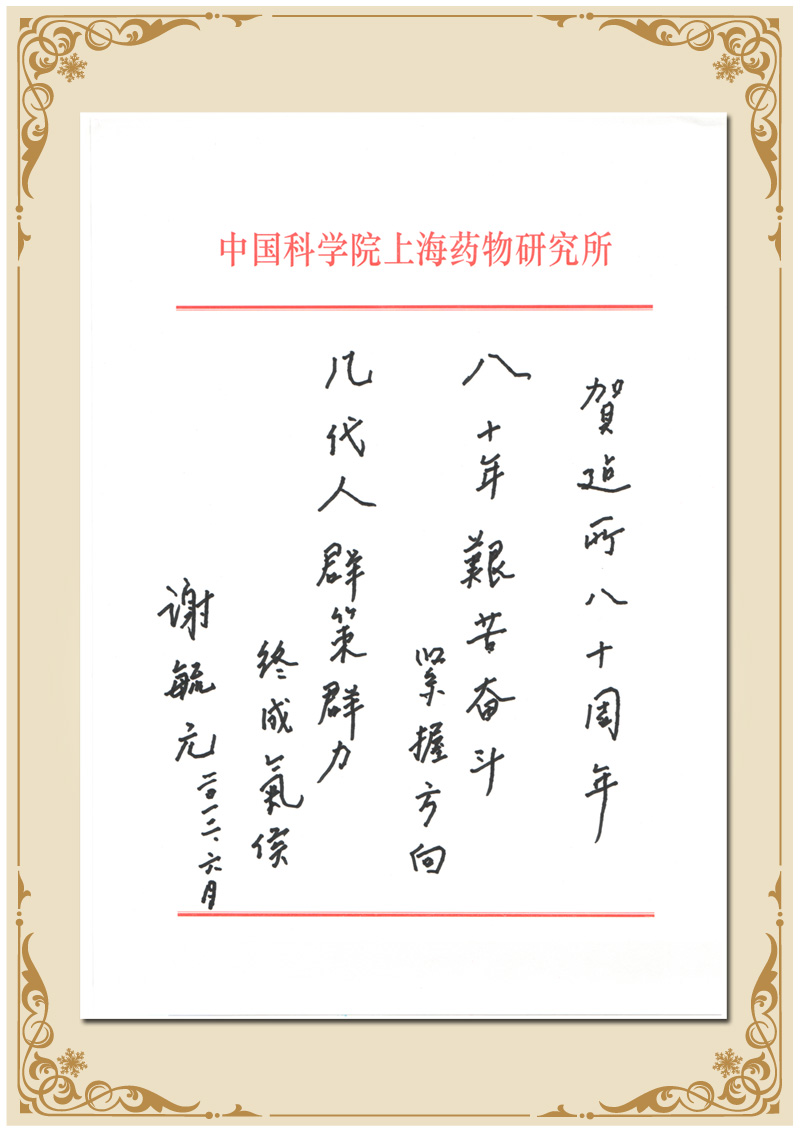 中国科学院上海药物研究所
賀建所八十周年
八十年艱苦奋斗
紧握方向
几代人群策群力
终成氣候
谢毓元
二〇一二、六月